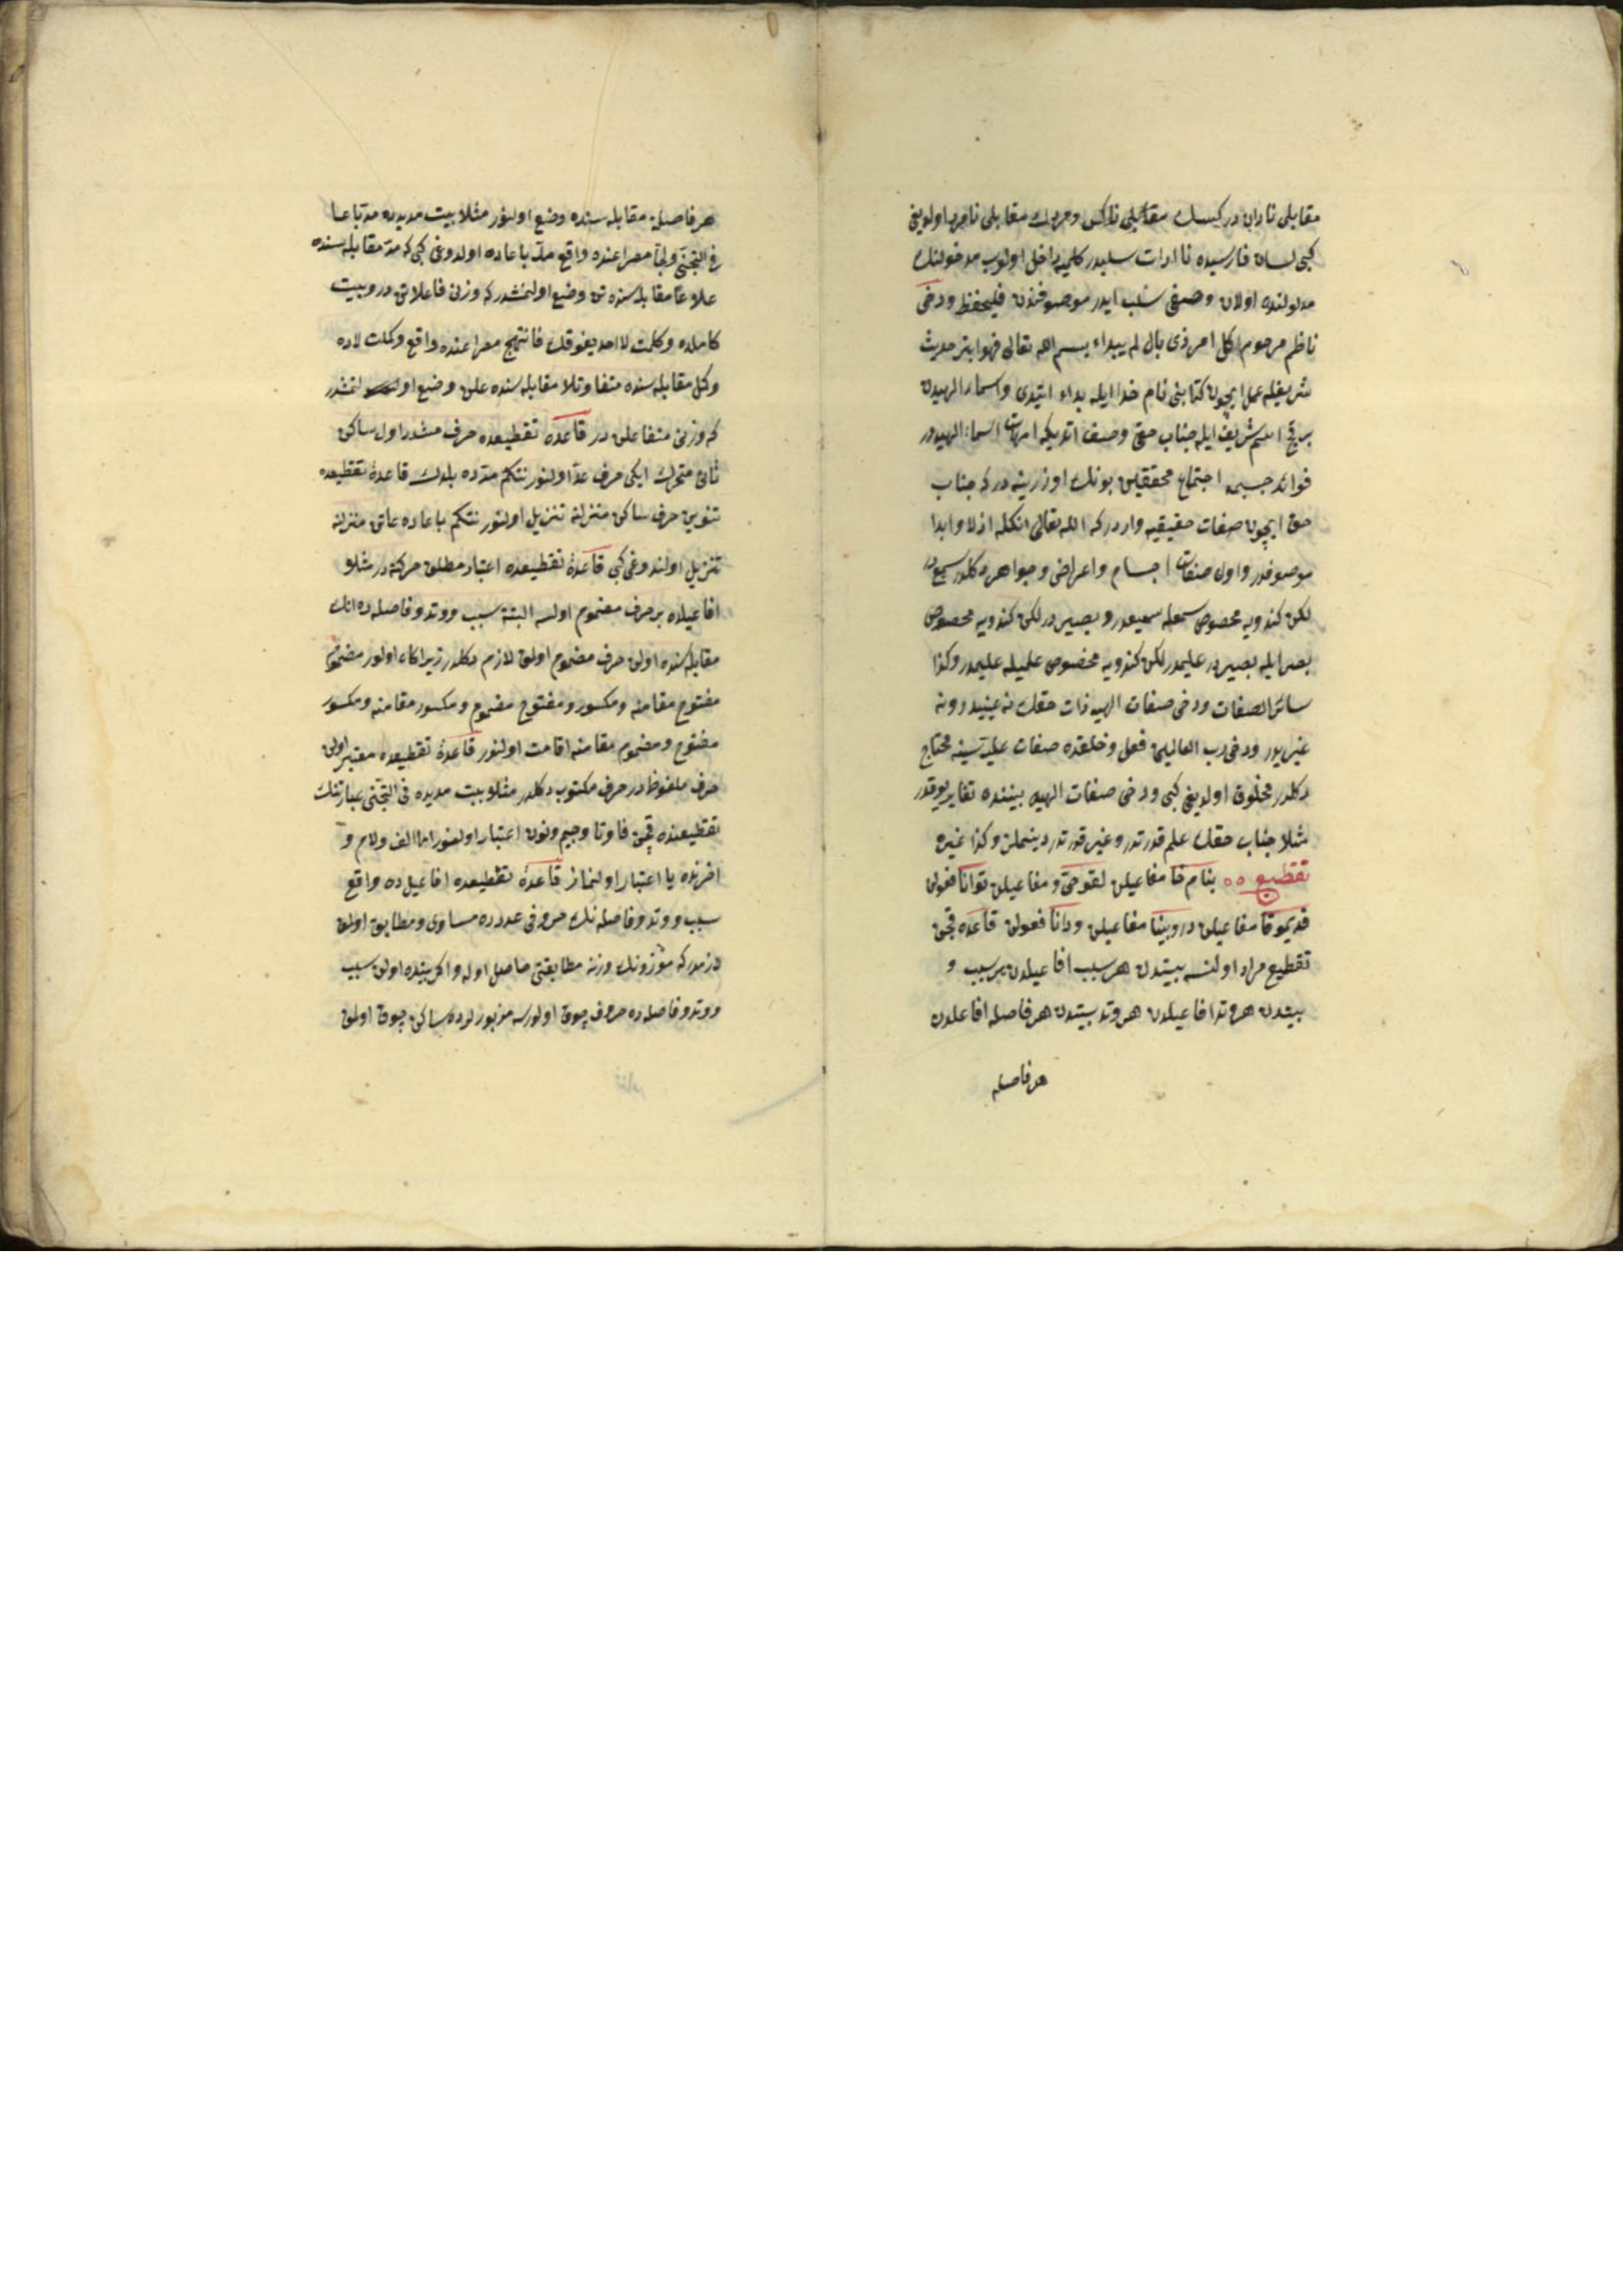 مقابلی نادان در کیسك مقابلی ناکس و مردك مقابلی نامرد اولدیغی
کبی لسان فارسیده نا ادات سلبدر کلمه‌یه داخل اولوب مدخولنك
مدلولنده اولان وصفی سلب ایدر موصوفندن فلیحفظ ودخی
ناظم مرحوم کل امر ذی بال لم یبداء بسم الله تعالی فهو ابتر حدیث
شریفیله عمل ایچون کتابنی نام خدا ایله بداء ایتدی واسماء الهیدن
برقچ اسم شریف ایله جناب حقی وصف اتدیکه امهات اسماء الهیدر
فوائد جسیمه اجتماع محققین بونك اوزرینه در که جناب
حق ایچون صفات حقیقیه وار در که الله تعالی انکله ازلا وابدا
موصوفدر واول صفات اجسام واعراض وجواهر دکلدر سمیعدر
لکن کندویه مخصوص سمعله سمیعدر وبصیردر لکن کندویه مخصوص
بصر ایله بصیردر علیمدر لکن کندویه مخصوص علمیله علیمدر وکذا
سائر الصفات ودخی صفات الهیه ذات حقك نه عینیدر ونه
غیریدر ودخی رب العالمین فعل وخلقده صفات علیه‌سینه محتاج
دکلدر مخلوق اولدیغی کبی ودخی صفات الهیه بیننده تغایر یوقدر
مثلا جناب حقك علم قدرتدر وغیر قدرتدر دینملن وکذا غیره
تقطیع ٥٥ بنام خا مفاعیلن لقوحی و مفاعیلن توانا فعولن
قدیموقا مفاعیلن دروبینا مفاعیلن ودانا فعولن قاعده قچن
تقطیع مراد اولنسه بیتدن هر سبب افاعیلدن بر سبب و
بیتدن هر وتد افاعیلدن هر وتد بیتدن هر فاصله افاعلدن
هر فاصله
هر فاصله مقابله سنده وضع اولنور مثلا بیت مدیدده مدّ باعا
فی التجنی ولجا مصراعنده واقع مدّ باعاده اولدوغی کبی که مدّ مقابله سنده
علا عا مقابله سنده تن وضع اولنمشدر که وزنی فاعلاتن در وبیت
کاملده وکلمت لا احد یفوقك فانتهج مصراعنده واقع وکلمت لاده
وکل مقابله سنده متفا وتلا مقابله سنده علن وضع اولنمشدر
که وزنی متفاعلن در قاعده تقطیعده حرف مشدد اول ساکن
ثانی متحرك ایکی حرف عدّ اولنور نتکم مدّده بلدك قاعدهٔ تقطیعده
تنوین حرف ساکن منزلنه تنزیل اولنور نتکم باعاده عاتن منزلنه
تنزیل اولندوغی کبی قاعدهٔ تقطیعده اعتبار مطلق حرکته در مثلا
افاعیلده بر حرف مضموم اولسه البته سبب ووتد وفاصله ده انك
مقابله سنده اولن حرف مضموم اولمق لازم دکلدر زیرا کاه اولور مضموم
مفتوح مقامنه ومکسور ومفتوح مضموم ومکسور مقامنه ومکسور
مفتوح ومضموم مقامنه اقامت اولنور قاعدهٔ تقطیعده معتبر اولن
حرف ملفوظ در حرف مکتوب دکلدر مثلا بیت مدیده فی التجنی عبارتنك
تقطیعنده قچن فا وتا وجیم ونون اعتبار اولنور اما الف ولام و
اخرنده یا اعتبار اولنماز قاعدهٔ تقطیعده افاعیل ده واقع
سبب ووتد وفاصله نك حروفی عددده مساوی ومطابق اولمق
لازمدر که موزونك وزنه مطابقتی حاصل اوله واکر بیتده اولن سبب
ووتد وفاصله ده حروف چوق اولورسه مزبورلرده ساکن چوق اولمق